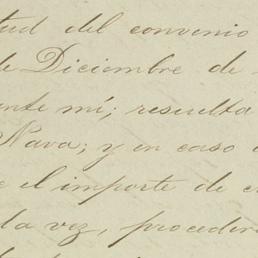 tud del convenio
de Diciembre de
ante mí; resulta
Nava; y en caso
e el importe de
la vez, procederá